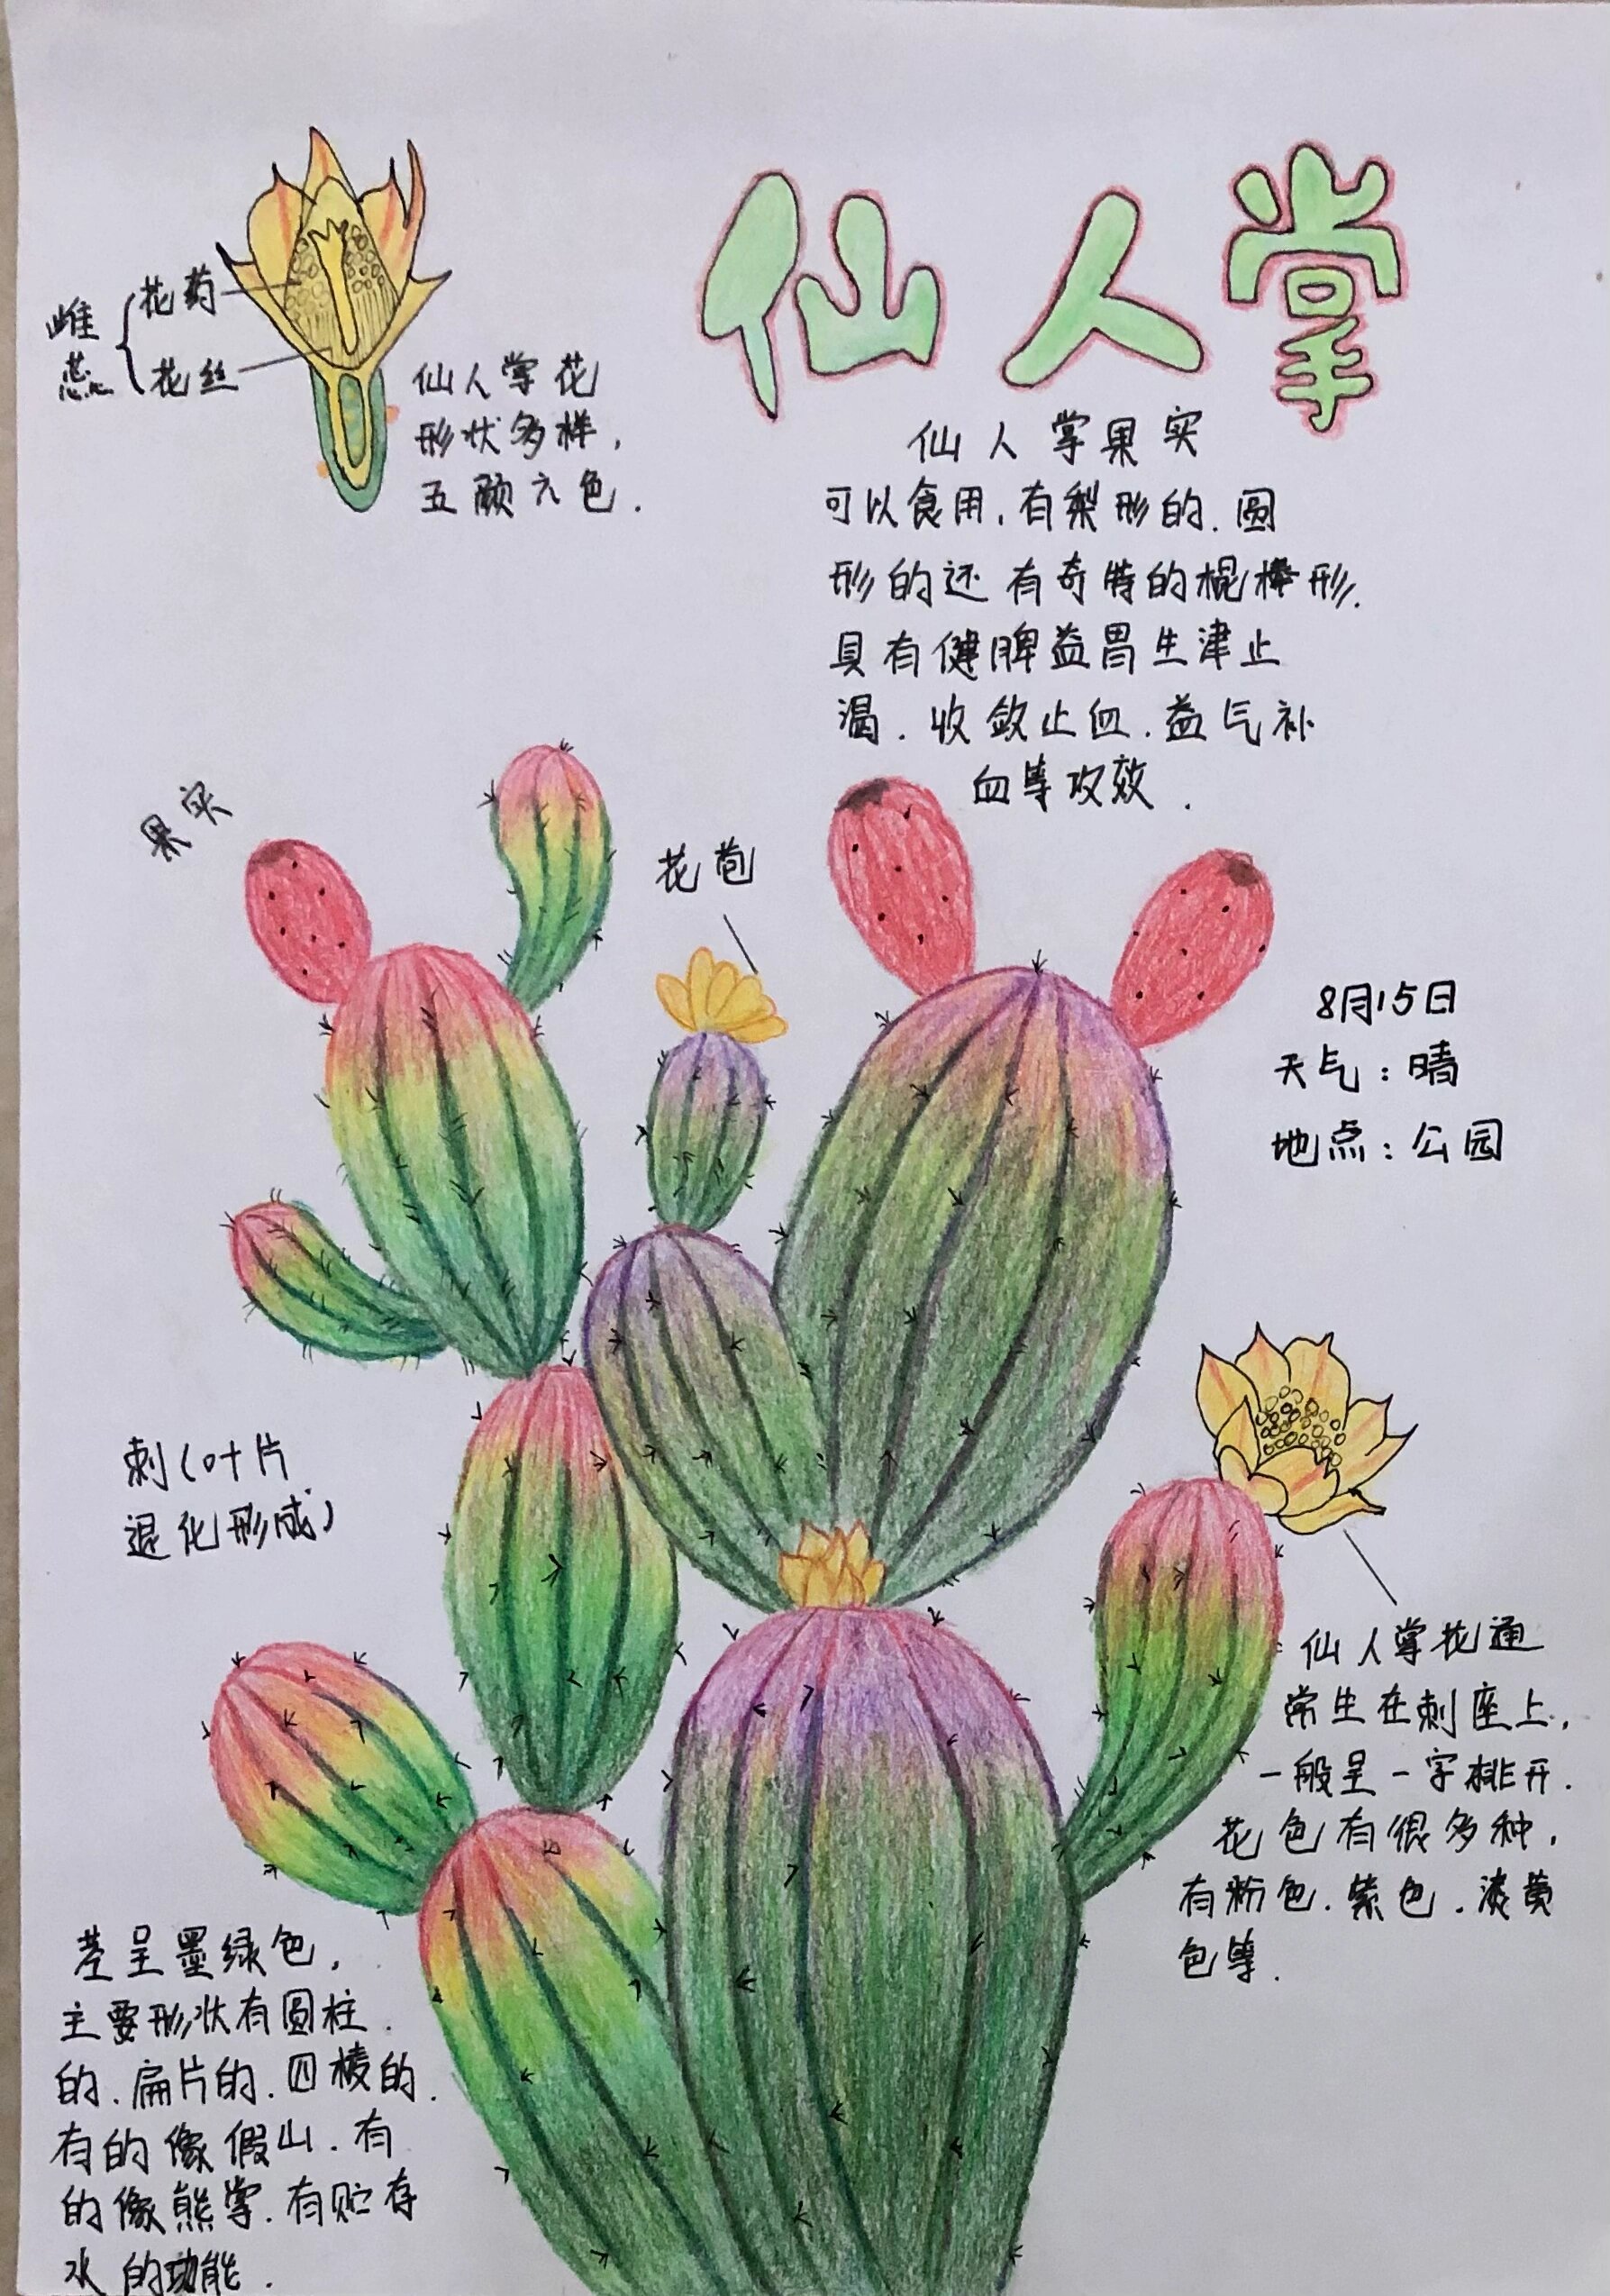 仙人掌
雌蕊
花药
花丝
仙人掌花
形状多样,
五颜六色.
仙人掌果实
可以食用,有梨形的.圆
形的还有奇特的棍棒形.
具有健脾益胃生津止
渴.收敛止血.益气补
血等攻效.
果实
花苞
8月15日
天气:晴
地点:公园
刺(叶片
退化形成)
仙人掌花通
常生在刺座上,
一般呈一字排开.
花色有很多种,
有粉色.紫色.淡黄
色等.
茎呈墨绿色,
主要形状有圆柱
的.扁片的.四棱的.
有的像假山.有
的像熊掌.有贮存
水的功能.